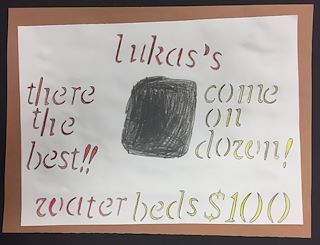 lukas's
there
the
best!!
come
on
down!
water beds $100